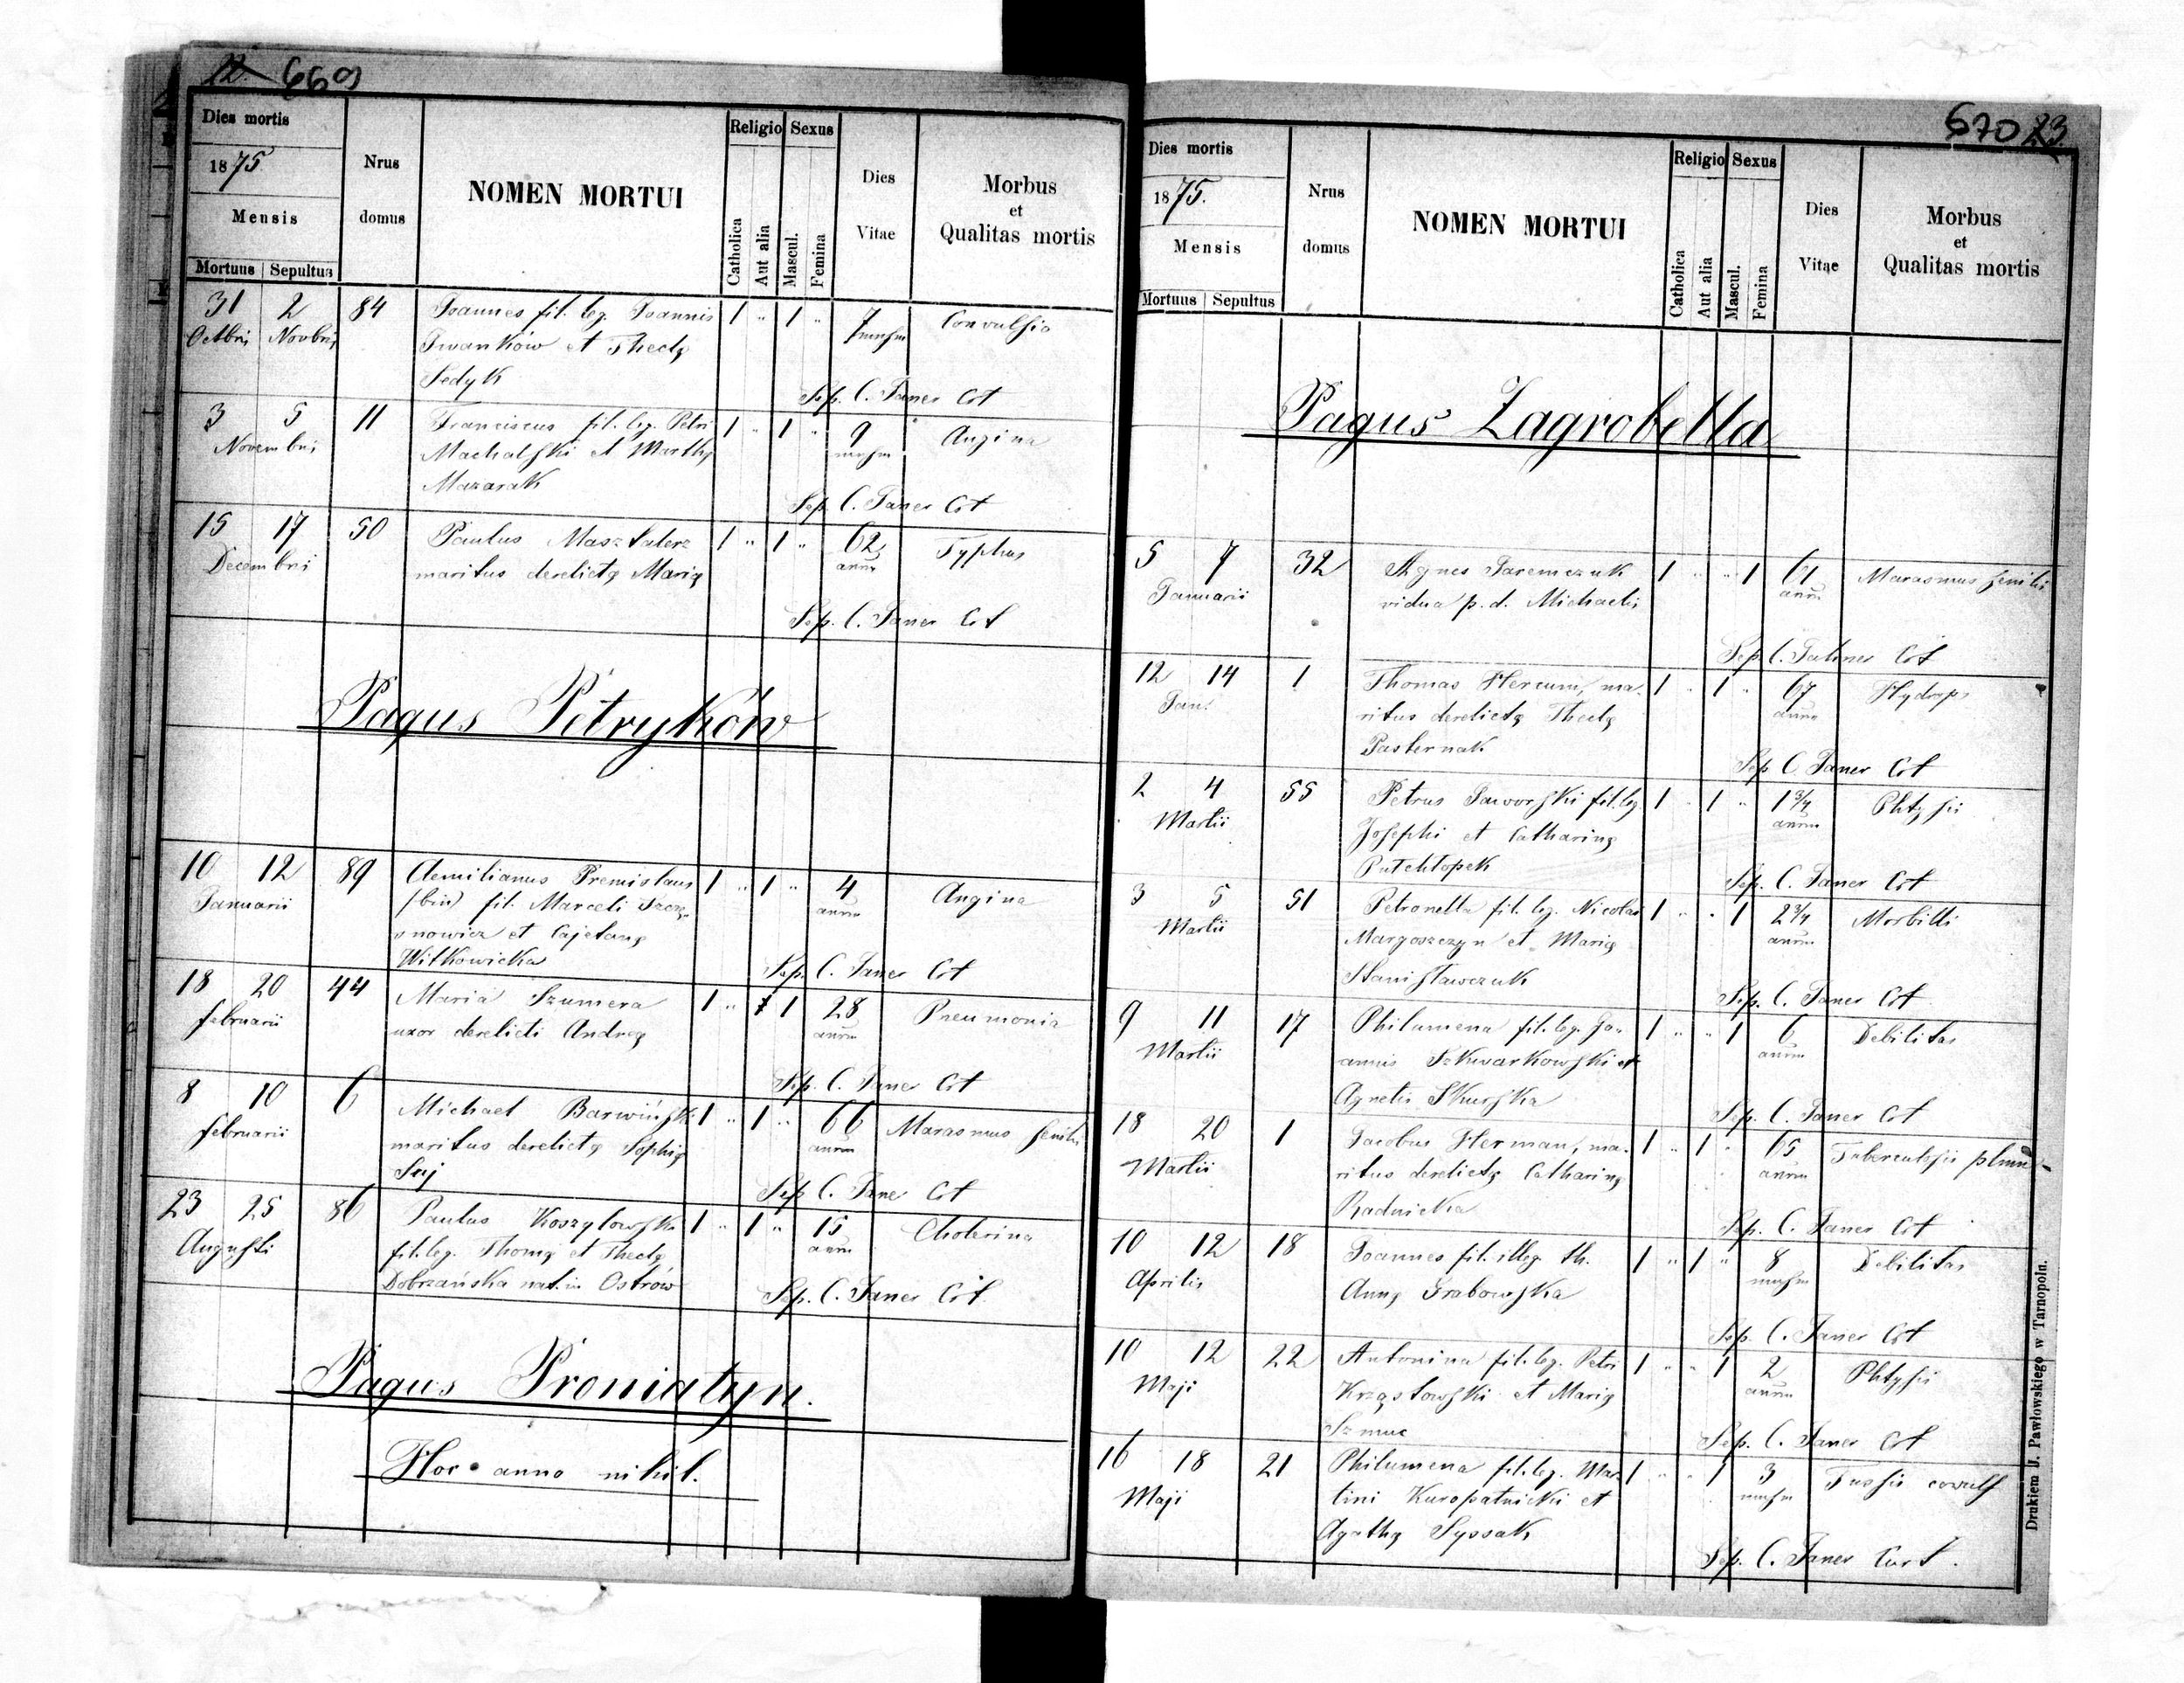 12. 669
Dies mortis
1875
Mensis
Mortuus Sepultus
Nrus
domus
NOMEN MORTUI
Religio
Catholica
Aut alia
Sexus
Mascul.
Femina
Dies
Vitae
Morbus
et
Qualitas mortis
31 2 84 Joannes fil. leg. Joannis 1 " 1 " 7 Convulsio
Octbri Novbri Iwanków et Theclę
Sedyk
Sep. C. Janer Cot
3 5 11 Franciscus fil. leg. Petri 1 " 1 " 9 Angina
Novembri Machalski et Marthę
Mazarak
Sep. C. Janer Cot
15 17 50 Paulus Masztalerz 1 " 1 " 62 Typhus
Decembri maritus derelictę Marię annor
Sep. C. Janer Cot
Pagus Petryków
10 12 89 Aemilianus Premislaus 1 " 1 " 4 Angina
Januarii (bin) fil. Marceli annor
et Cajetanę
Witkowicka
Sep. C. Janer Cot
18 20 44 Maria Szumera 1 " 1 28 Pneumonia
februarii uxor derelicti Andreę annor
Sep. C. Janer Cot
8 10 6 Michael Barwiński 1 " 1 " 66 Marasmus senilis
februarii maritus derelictę Sophię annor
Sep C. Jane Cot
23 25 86 Paulus Koszylowski 1 " 1 " 15 Cholerina
Augusti fil. leg. Thomę et Theclę annor
Dobrzańska nat. in Ostrów
Sep. C. Janer Cot
Pagus Proniatyn.
Hoc anno nihil.
670 23.
Dies mortis
1875.
Mensis
Mortuus Sepultus
Nrus
domus
NOMEN MORTUI
Religio
Catholica
Aut alia
Sexus
Mascul.
Femina
Dies
Vitae
Morbus
et
Qualitas mortis
Pagus Zagrobella
5 7 32 Agnes Jaremczuk 1 " " 1 61 Marasmus senilis
Januarii vidua p. d. Michaelis annor
Sep. C. Cot
12 14 1 Thomas Hercum, ma- 1 " 1 " 67 Hydrops
Jan. ritus derelictę Theclę annor
Pasternak
Sep C. Janer Cot
2 4 55 Petrus Jaworski fil. leg. 1 " 1 " 1 3/4 Phtysis
Martii Josephi et Catharinę annor
Putchlopek
Sep. C. Janer Cot
3 5 51 Petronella fil. leg. Nicolai 1 " " 1 2 3/4 Morbilli
Martii Margoszczyn et Marię annor
Stanisławczuk
Sep. C. Janer Cot
9 11 17 Philumena fil. leg. Jo- 1 " " 1 6 Debilitas
Martii annis Szkwarkowski et annor
Agnetis Skurska
Sep. C. Janer Cot
18 20 1 Jacobus Herman, ma- 1 " 1 " 65 Tuberculosis plmū
Martii ritus derelictę Catharinę annor
Radnicka
Sep. C. Janer Cot
10 12 18 Joannes fil. illeg. th. 1 " 1 " 8 Debilitas
Aprilis Annę Grabowska
Sep. C. Janer Cot
10 12 22 Antonina fil. leg. Petri 1 " " 1 2 Phtysis
Maji Krząstowski et Marię annor
Szmuc
Sep. C. Janer Cot
16 18 21 Philumena fil. leg. Mar 1 " " 1 3 Tussis covuls
Maji tini Kuropatnicki et
Agathę Syssak
Sep. C. Janer Curt.
Drukiem J. Pawłowskiego w Tarnopolu.